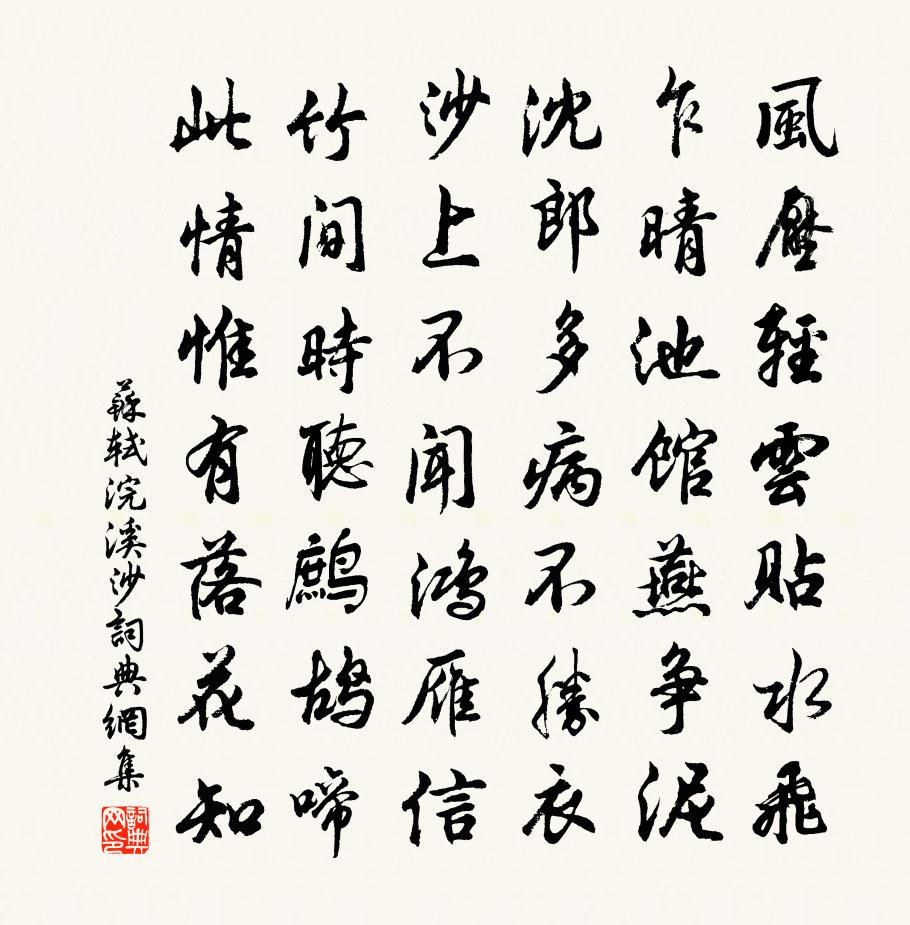 風壓輕雲貼水飛
乍晴池館燕爭泥
沈郎多病不勝衣
沙上不聞鴻雁信
竹間時聽鷓鴣啼
此情惟有落花知
蘇軾浣溪沙詞典網集
詞典网印